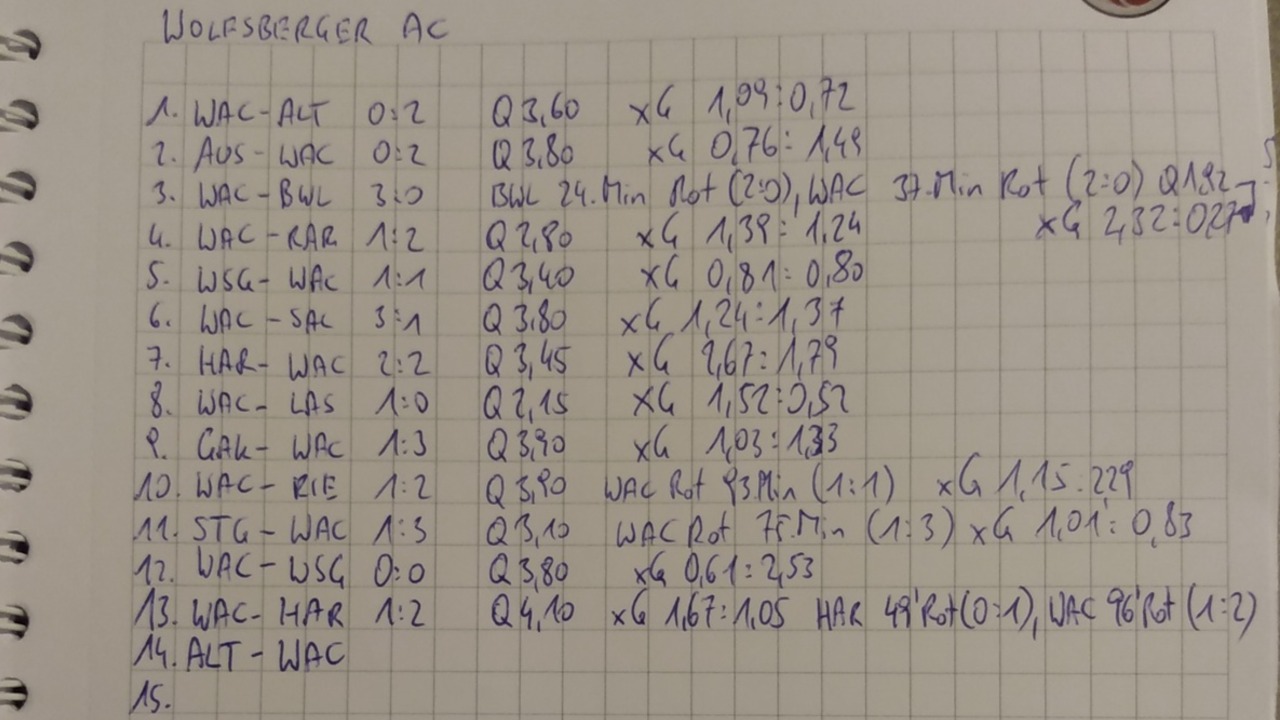 WOLFSBERGER AC
1. WAC-ALT 0:2 Q 3,60 xG 1,09:0,72
2. AUS-WAC 0:2 Q 3,80 xG 0,76:1,49
3. WAC-BWL 3:0 BWL 24.Min Rot (2:0), WAC 37.Min Rot (2:0) Q 1,92
xG 2,32:0,27
4. WAC-RAR 1:2 Q 2,80 xG 1,39:1,24
5. WSG-WAC 1:1 Q 3,40 xG 0,81:0,80
6. WAC-SAL 3:1 Q 3,80 xG 1,24:1,37
7. HAR-WAC 2:2 Q 3,45 xG 2,67:1,79
8. WAC-LAS 1:0 Q 2,15 xG 1,52:0,52
9. GAK-WAC 1:3 Q 3,90 xG 1,03:1,33
10. WAC-RIE 1:2 Q 3,90 WAC Rot 93 Min (1:1) xG 1,15:2,29
11. STG-WAC 1:3 Q 3,10 WAC Rot 75.Min (1:3) xG 1,01:0,83
12. WAC-WSG 0:0 Q 3,80 xG 0,61:2,53
13. WAC-HAR 1:2 Q 4,10 xG 1,67:1,05 HAR 49' Rot (0:1), WAC 96' Rot (1:2)
14. ALT-WAC
15.